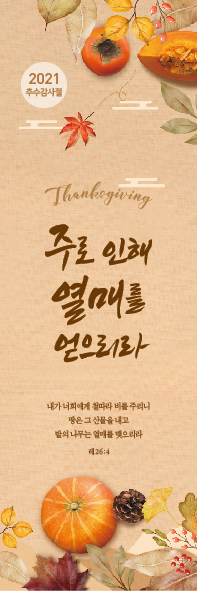 2021
추수감사절
Thanksgiving
주로 인해
열매를
얻으리라
내가 너희에게 철따라 비를 주리니
땅은 그 산물을 내고
밭의 나무는 열매를 맺으리라
레26:4